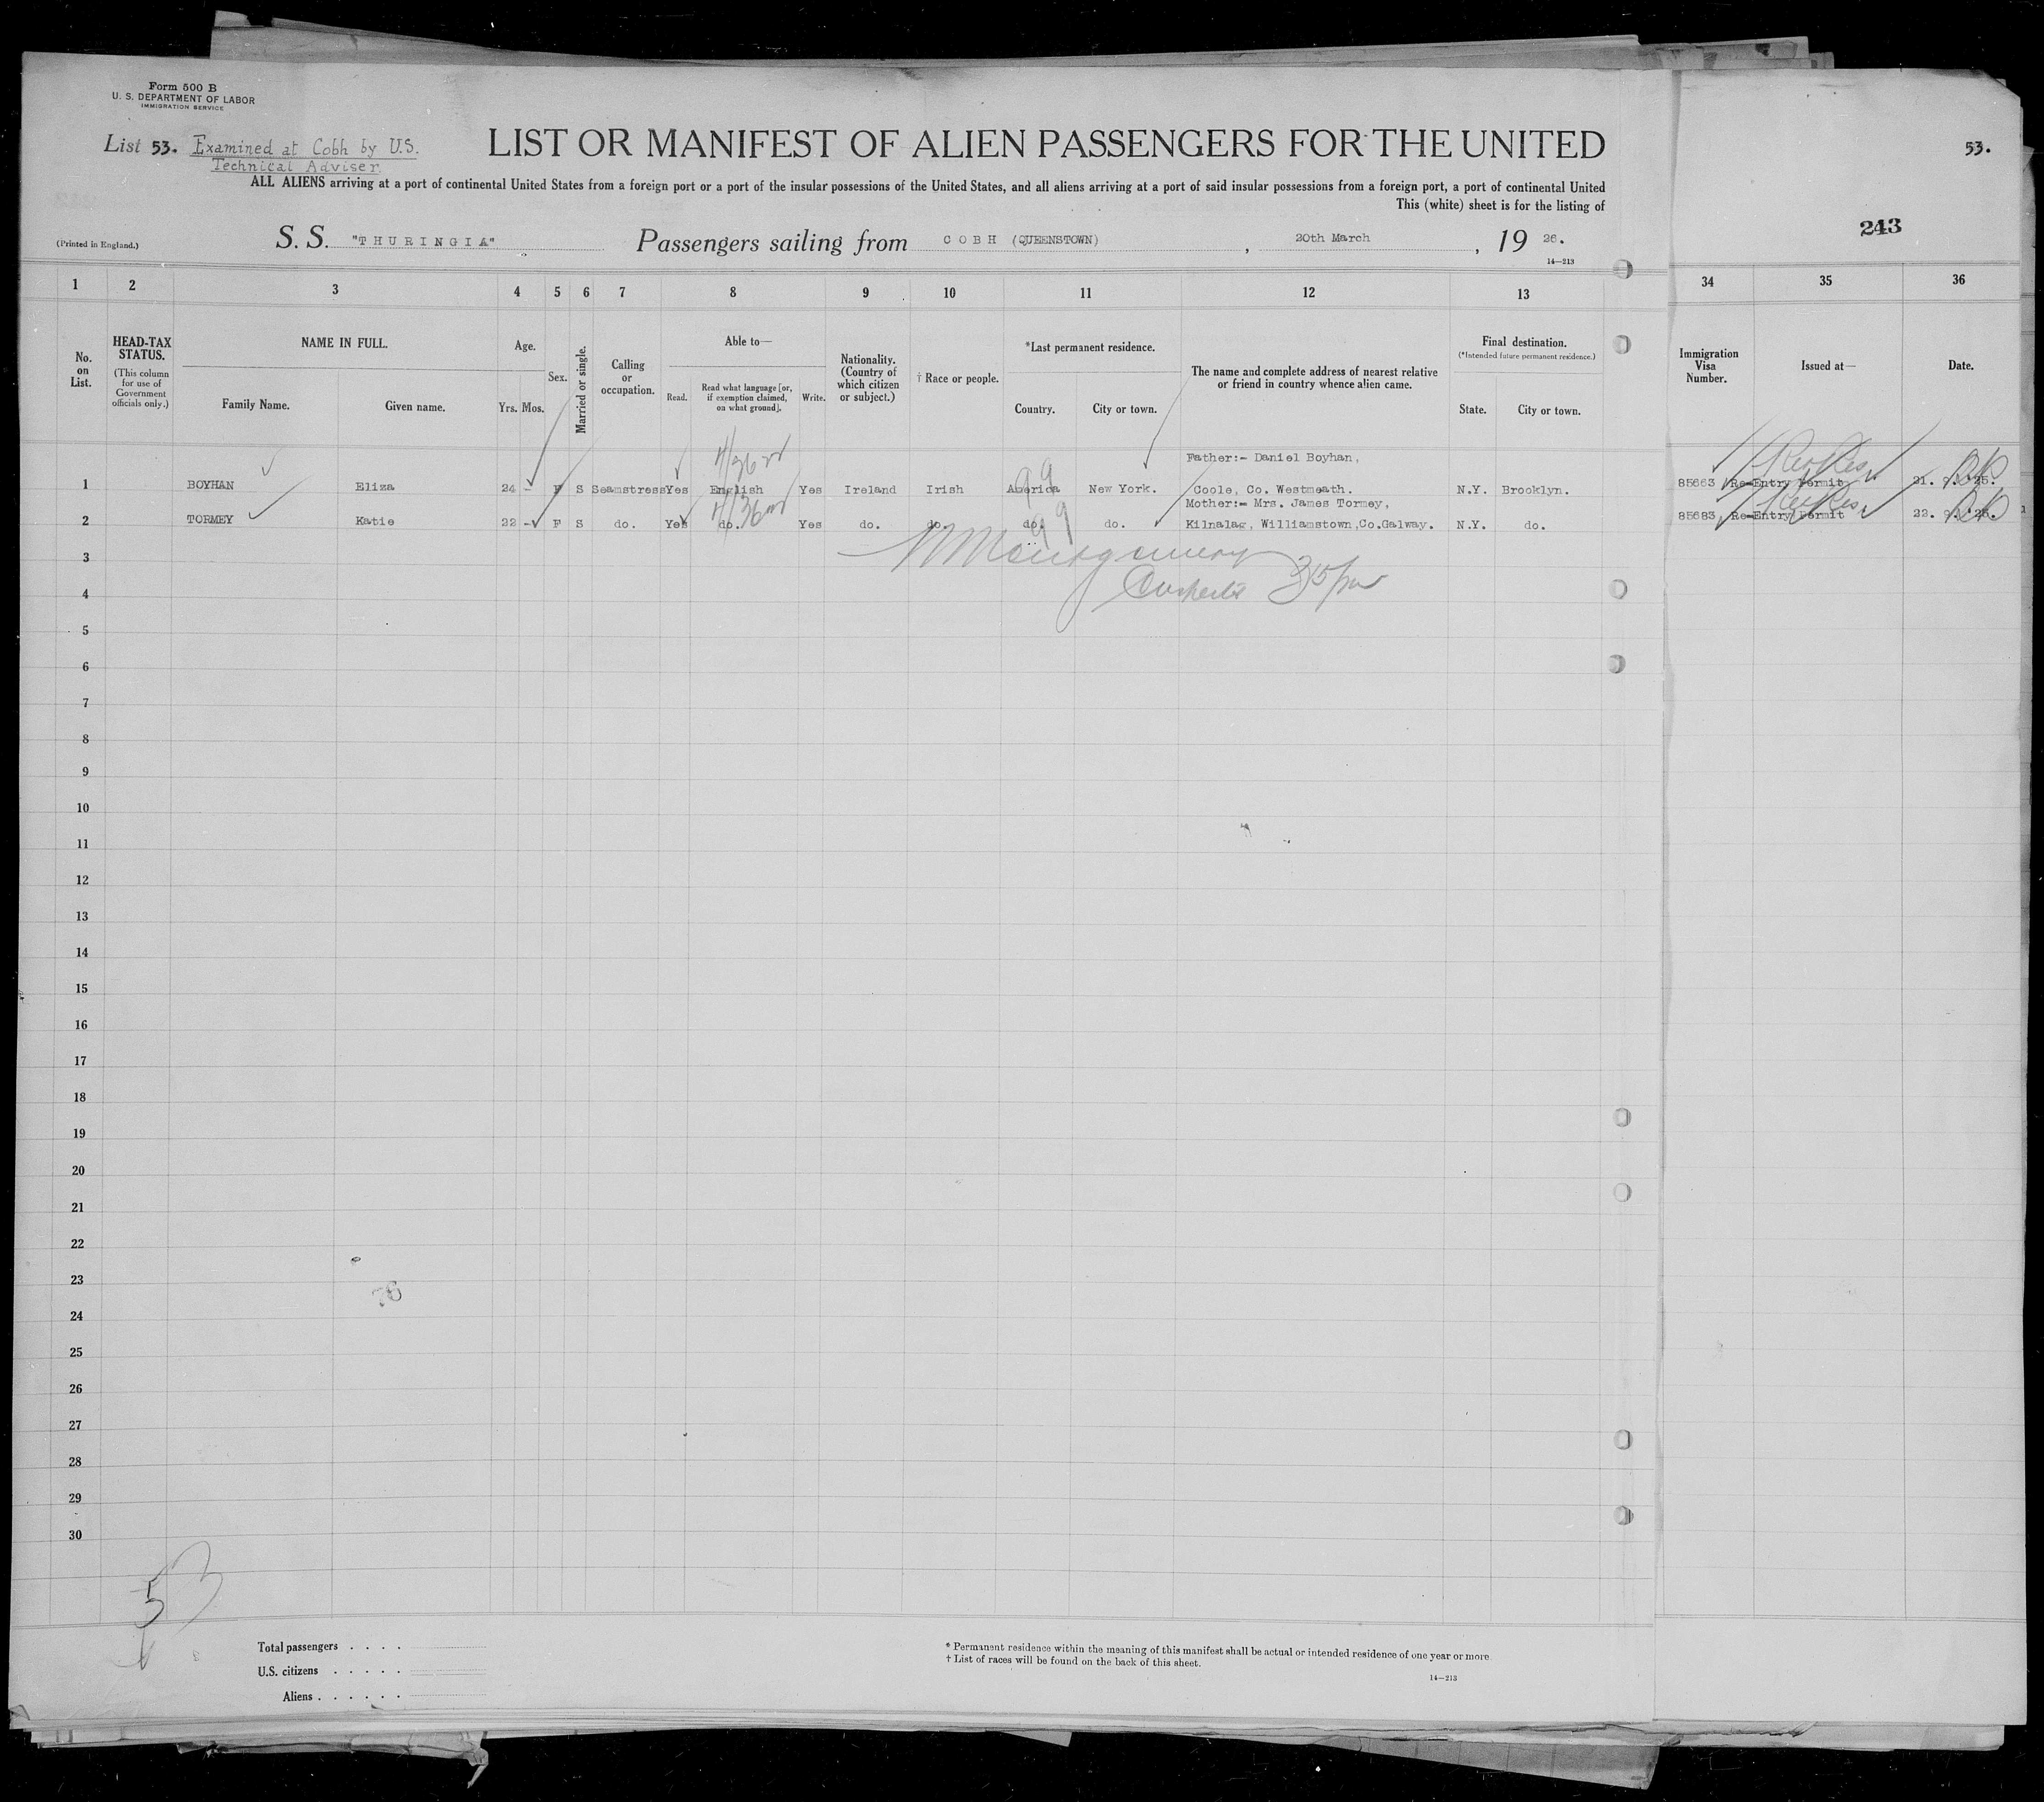 Form 500 B
U. S. DEPARTMENT OF LABOR
IMMIGRATION SERVICE
List 53. Examined at Cobh by U.S.
Technical Adviser
LIST OR MANIFEST OF ALIEN PASSENGERS FOR THE UNITED
53.
ALL ALIENS arriving at a port of continental United States from a foreign port or a port of the insular possessions of the United States, and all aliens arriving at a port of said insular possessions from a foreign port, a port of continental United
This (white) sheet is for the listing of
243
(Printed in England.)
S. S. "THURINGIA" Passengers sailing from COBH (QUEENSTOWN), 20th March, 19 26.
14—213
1 2 3 4 5 6 7 8 9 10 11 12 13 34 35 36
No. on List.
HEAD-TAX STATUS.
(This column for use of Government officials only.)
NAME IN FULL.
Family Name. Given name.
Age.
Yrs. Mos.
Sex.
Married or single.
Calling or occupation.
Able to—
Read. Read what language [or, if exemption claimed, on what ground]. Write.
Nationality. (Country of which citizen or subject.)
† Race or people.
*Last permanent residence.
Country. City or town.
The name and complete address of nearest relative or friend in country whence alien came.
Final destination.
(*Intended future permanent residence.)
State. City or town.
Immigration Visa Number.
Issued at—
Date.
Father:- Daniel Boyhan,
1 BOYHAN Eliza 24 - F S Seamstress Yes English Yes Ireland Irish America New York. Coole, Co. Westmeath. N.Y. Brooklyn. 85663 Re-Entry Permit 21.
Mother:- Mrs. James Tormey,
2 TORMEY Katie 22 - F S do. Yes do. Yes do. do. do. do. Kilnalag, Williamstown,Co.Galway. N.Y. do. 85683 Re-Entry Permit 22.
3 Montgomery
4
5
6
7
8
9
10
11
12
13
14
15
16
17
18
19
20
21
22
23
76
24
25
26
27
28
29
30
53
Total passengers . . . .
U.S. citizens . . . . .
Aliens . . . . . .
* Permanent residence within the meaning of this manifest shall be actual or intended residence of one year or more.
† List of races will be found on the back of this sheet.
14—213